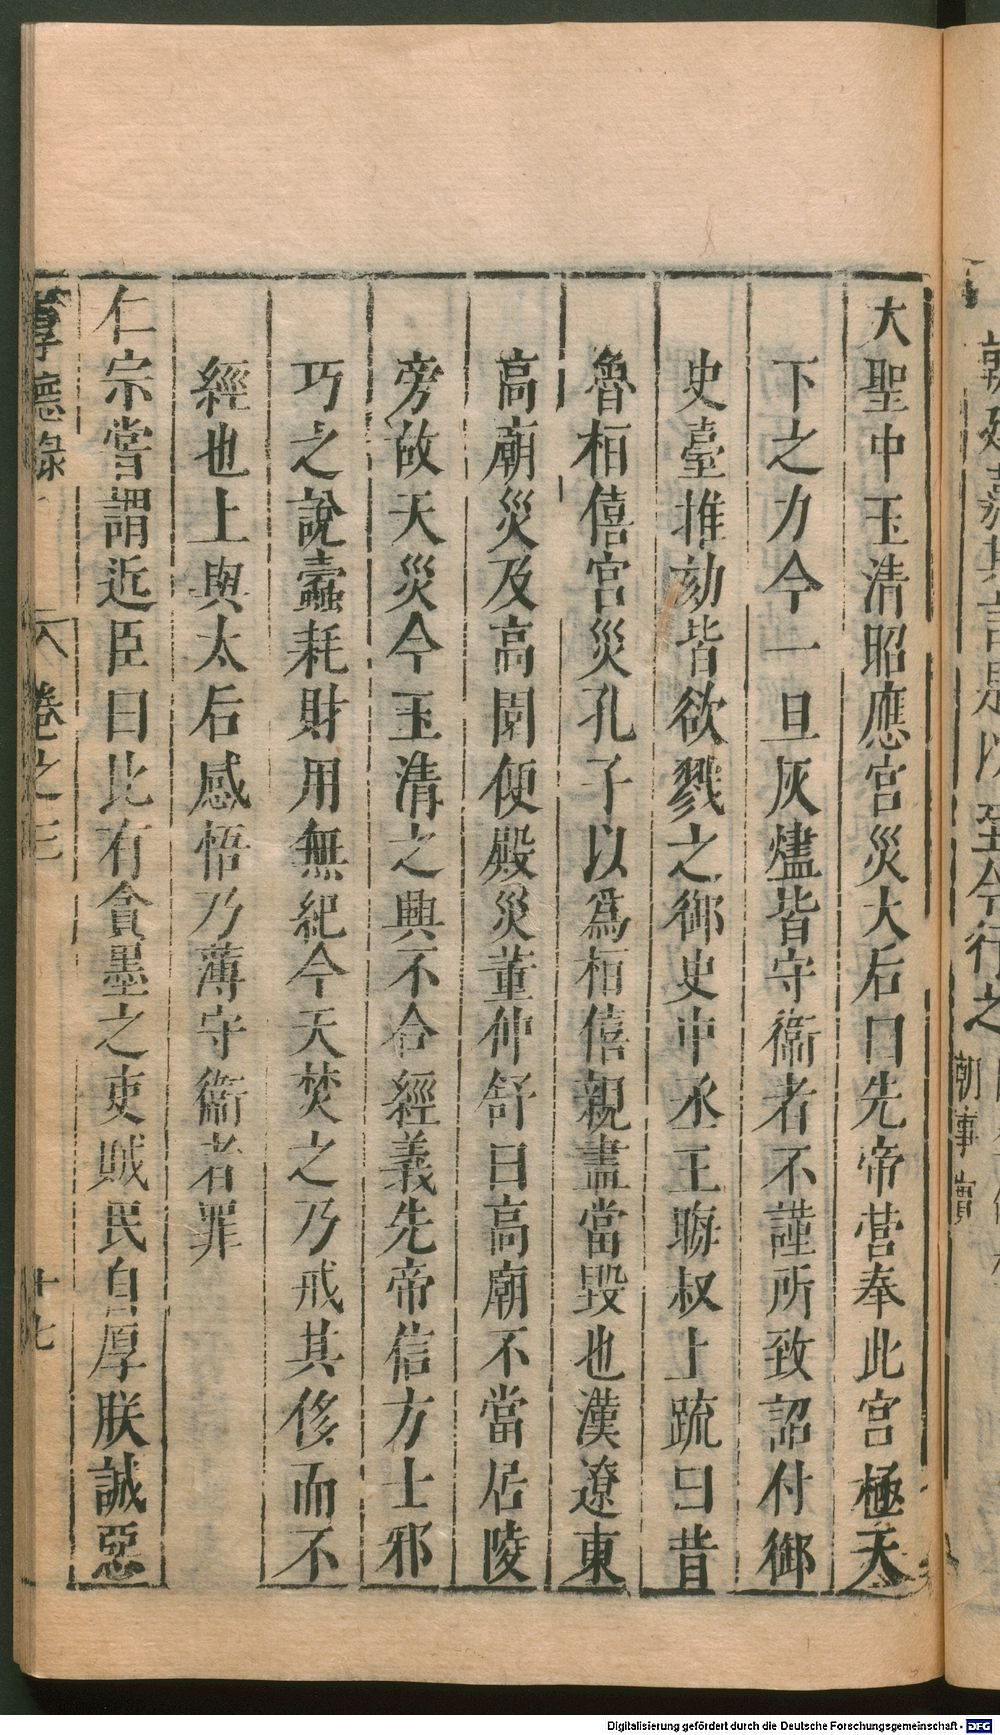 大聖中玉淸昭應宫災大后曰先帝營奉此宫極天
下之力今一旦灰燼皆守衞者不謹所致詔付御
史臺推劾皆欲戮之御史中丞王曙叔上疏曰昔
魯桓僖宫災孔子以爲桓僖親盡當毀也漢遼東
高廟災及高園便殿災董仲舒曰高廟不當居陵
旁故天災今玉淸之興不合經義先帝信方士邪
巧之說蠧耗財用無紀今天焚之乃戒其侈而不
經也上與太后感悟乃薄守衞者罪
仁宗嘗謂近臣曰比有貪墨之吏賊民自厚朕誠惡
厚德錄 卷之三 十七
Digitalisierung gefördert durch die Deutsche Forschungsgemeinschaft - DFG